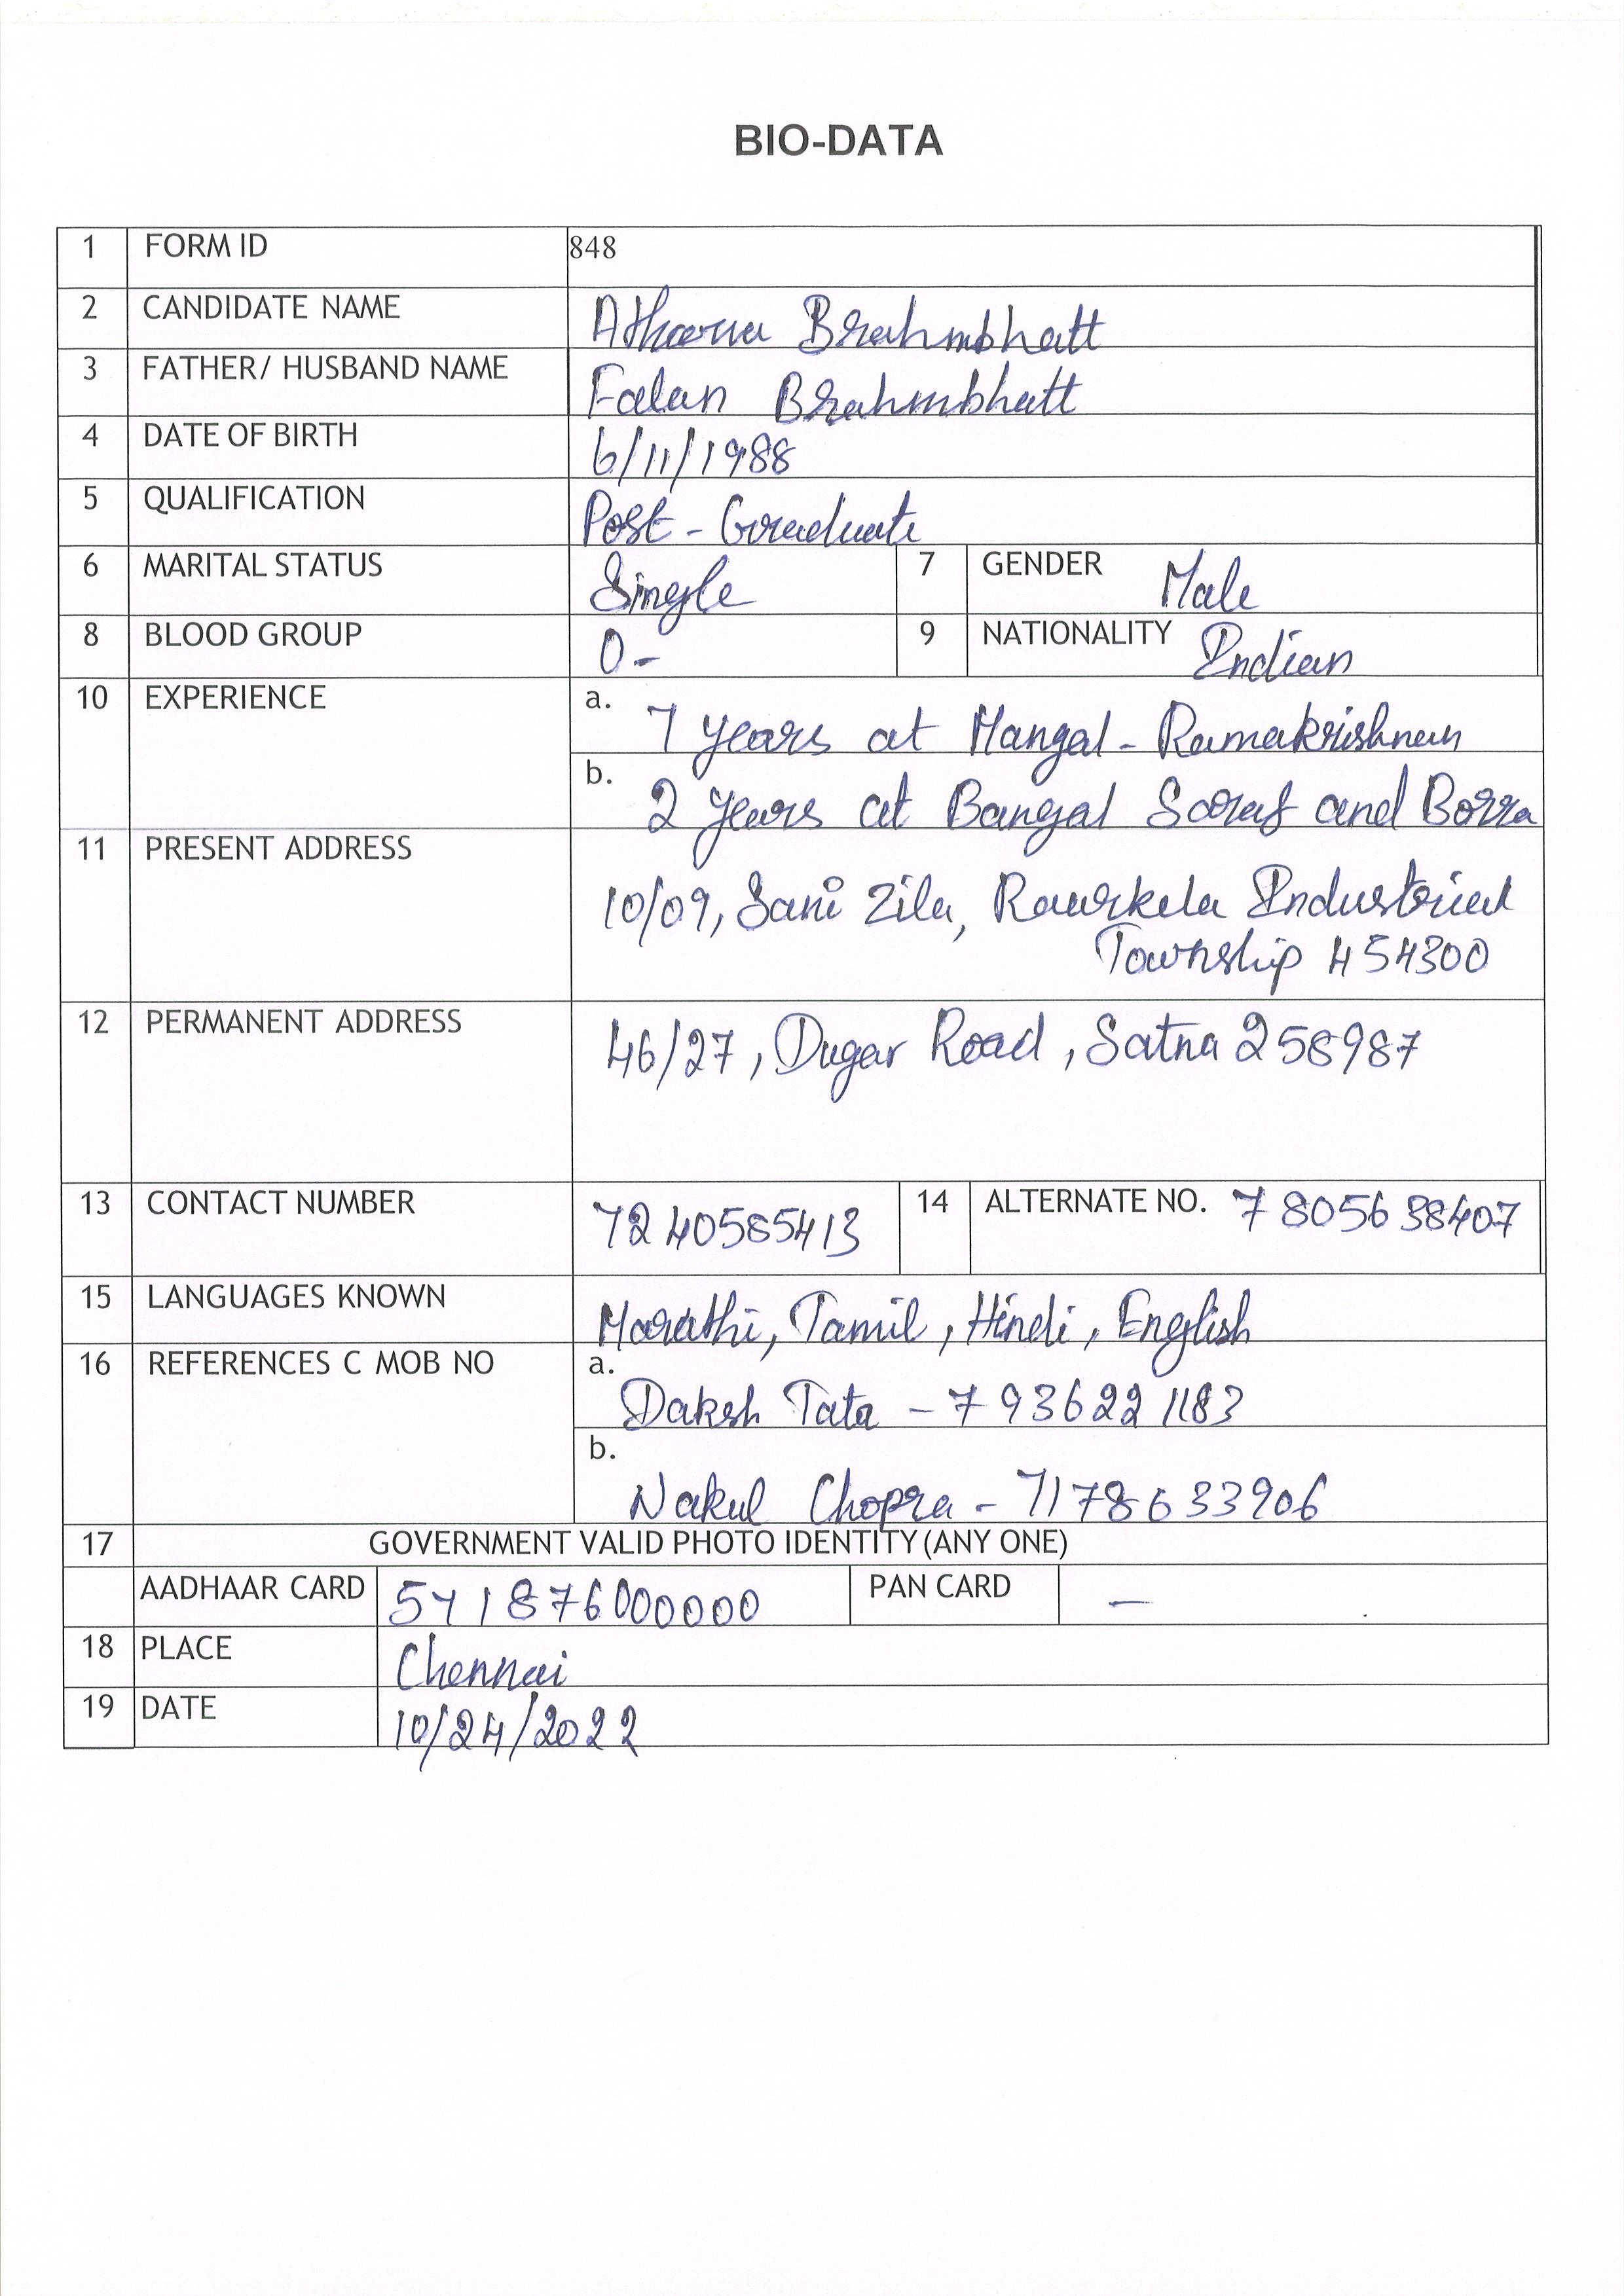 BIO-DATA
1 FORM ID 848
2 CANDIDATE NAME Atharva Brahmbhatt
3 FATHER/ HUSBAND NAME Falan Brahmbhatt
4 DATE OF BIRTH 6/11/1988
5 QUALIFICATION Post-Graduate
6 MARITAL STATUS Single 7 GENDER Male
8 BLOOD GROUP O- 9 NATIONALITY Indian
10 EXPERIENCE a. 7 years at Mangal-Ramakrishnan
b. 2 years at Bangal Saraf and Borra
11 PRESENT ADDRESS 10/09, Sani Zila, Raurkela Industrial
Township 454300
12 PERMANENT ADDRESS 46/27, Dugar Road, Satna 258987
13 CONTACT NUMBER 7240585413 14 ALTERNATE NO. 7805638407
15 LANGUAGES KNOWN Marathi, Tamil, Hindi, English
16 REFERENCES C MOB NO a. Daksh Tata - 7936221183
b. Nakul Chopra - 7178633906
17 GOVERNMENT VALID PHOTO IDENTITY (ANY ONE)
AADHAAR CARD 541876000000 PAN CARD —
18 PLACE Chennai
19 DATE 10/24/2022